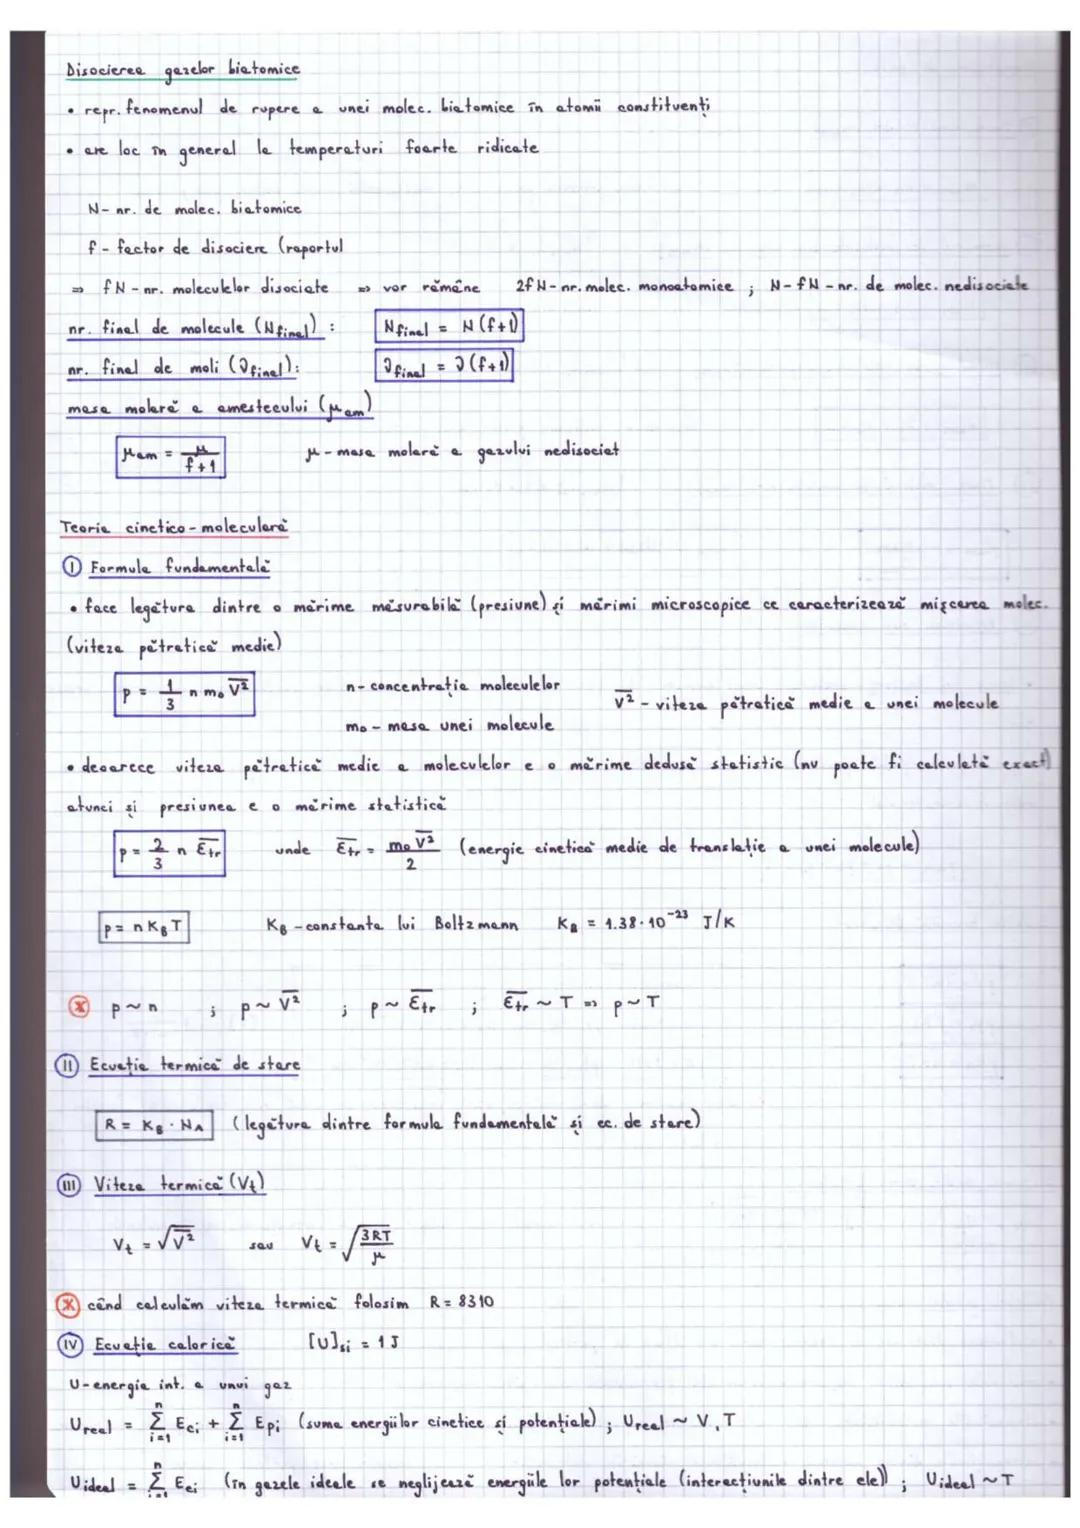 Disocierea gazelor biatomice
• repr. fenomenul de rupere a unei molec. biatomice în atomii constituenți
• are loc în general la temperaturi foarte ridicate
N - nr. de molec. biatomice
f - factor de disociere (raportul
⇒ fN - nr. moleculelor disociate ⇒ vor rămâne 2fN - nr. molec. monoatomice ; N-fN - nr. de molec. nedisociate
nr. final de molecule (Nfinal) : Nfinal = N(f+1)
nr. final de moli (νfinal): νfinal = ν(f+1)
masa molară a amestecului (μam)
μam = μ/(f+1) μ - masa molară a gazului nedisociat
Teoria cinetico-moleculară
I Formula fundamentală
• face legătura dintre o mărime măsurabilă (presiune) și mărimi microscopice ce caracterizează mișcarea molec.
(viteza pătratică medie)
p = 1/3 n m₀ v̅² n - concentrația moleculelor
v̅² - viteza pătratică medie a unei molecule
m₀ - masa unei molecule
• deoarece viteza pătratică medie a moleculelor e o mărime dedusă statistic (nu poate fi calculată exact)
atunci și presiunea e o mărime statistică
p = 2/3 n ε̅tr unde ε̅tr = m₀ v̅²/2 (energie cinetică medie de translație a unei molecule)
p = n KB T KB - constanta lui Boltzmann KB = 1.38·10⁻²³ J/K
* p ~ n ; p ~ v̅² ; p ~ ε̅tr ; ε̅tr ~ T ⇒ p ~ T
II Ecuația termică de stare
R = KB · NA (legătura dintre formula fundamentală și ec. de stare)
III Viteza termică (Vt)
Vt = √v̅² sau Vt = √(3RT/μ)
* când calculăm viteza termică folosim R = 8310
IV Ecuația calorică [U]si = 1J
U - energia int. a unui gaz
Ureal = Σ(i=1→n) Eci + Σ(i=1→n) Epi (suma energiilor cinetice și potențiale) ; Ureal ~ V, T
Uideal = Σ(i=1→n) Eci (în gazele ideale se neglijează energiile lor potențiale (interacțiunile dintre ele)) ; Uideal ~ T